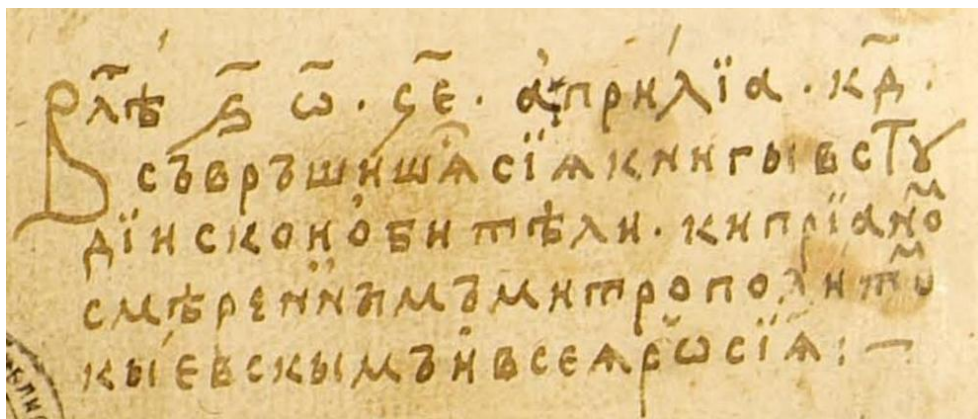 В лѣ҃ ҂ѕ҃ ѡ҃ . ч҃е . а҆прилїа . к҃д .
съвръшишѧ сїѧ книгы в стꙋ
дїискои о҆бители . кипрїаноⷨ
смѣренныимъ митрополитоⷨ
кыевскымъ и҆ всеѧ рѡсїѧ : —